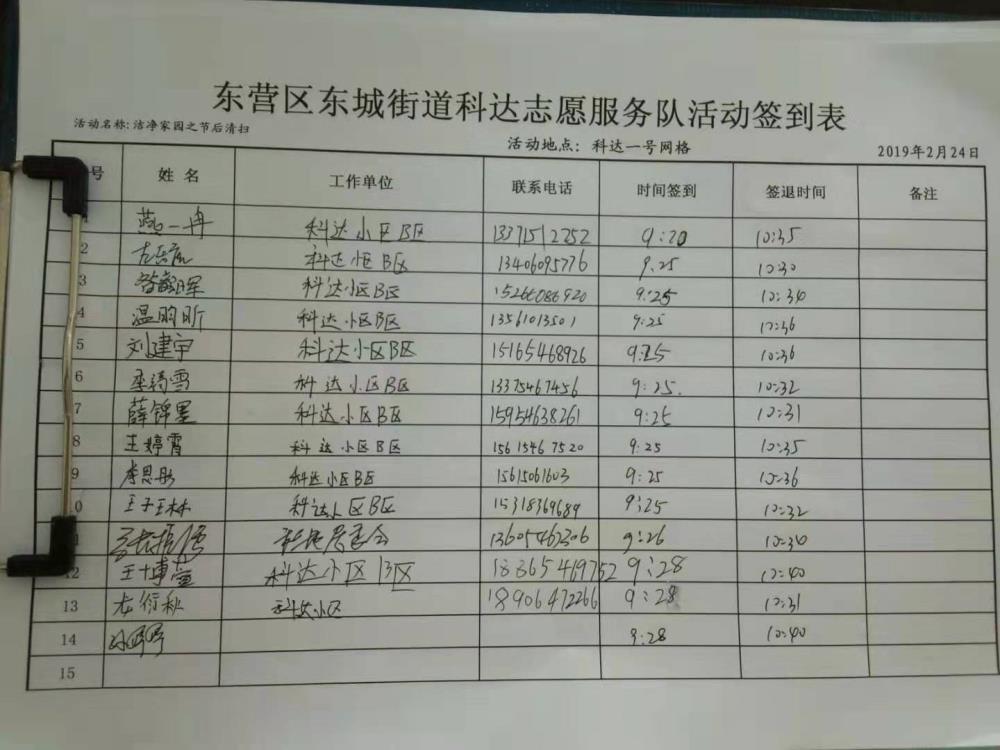 东营区东城街道科达志愿服务队活动签到表
活动名称:洁净家园之节后清扫
活动地点：科达一号网格
2019年2月24日
号 姓名 工作单位 联系电话 时间签到 签退时间 备注
1 燕一冉 科达小区B区 13371512752 9:20 10:35
2 科达小区B区 13406095776 9.25 10:30
3 科达小区B区 15266086920 9:25 10:34
4 温昀昕 科达小区B区 13561013501 9:25 10:36
5 刘建宇 科达小区B区 15165468926 9:25 10:36
6 科达小区B区 13375467456 9:25. 10:32
7 薛锦墨 科达小区B区 15954638261 9:25 10:31
8 王婷霄 科达小区B区 15615467520 9:25 10:35
9 李思彤 科达小区B区 15615061603 9:25 10:36
10 王子玉林 科达小区B区 15318369689 9:25 10:32
11 科达居委会 13605462306 9:26 10:30
12 王博萱 科达小区B区 18865469752 9:28 10:40
13 尤衍秋 科达小区 18906472266 9:28 10:31
14 9:28 10:40
15